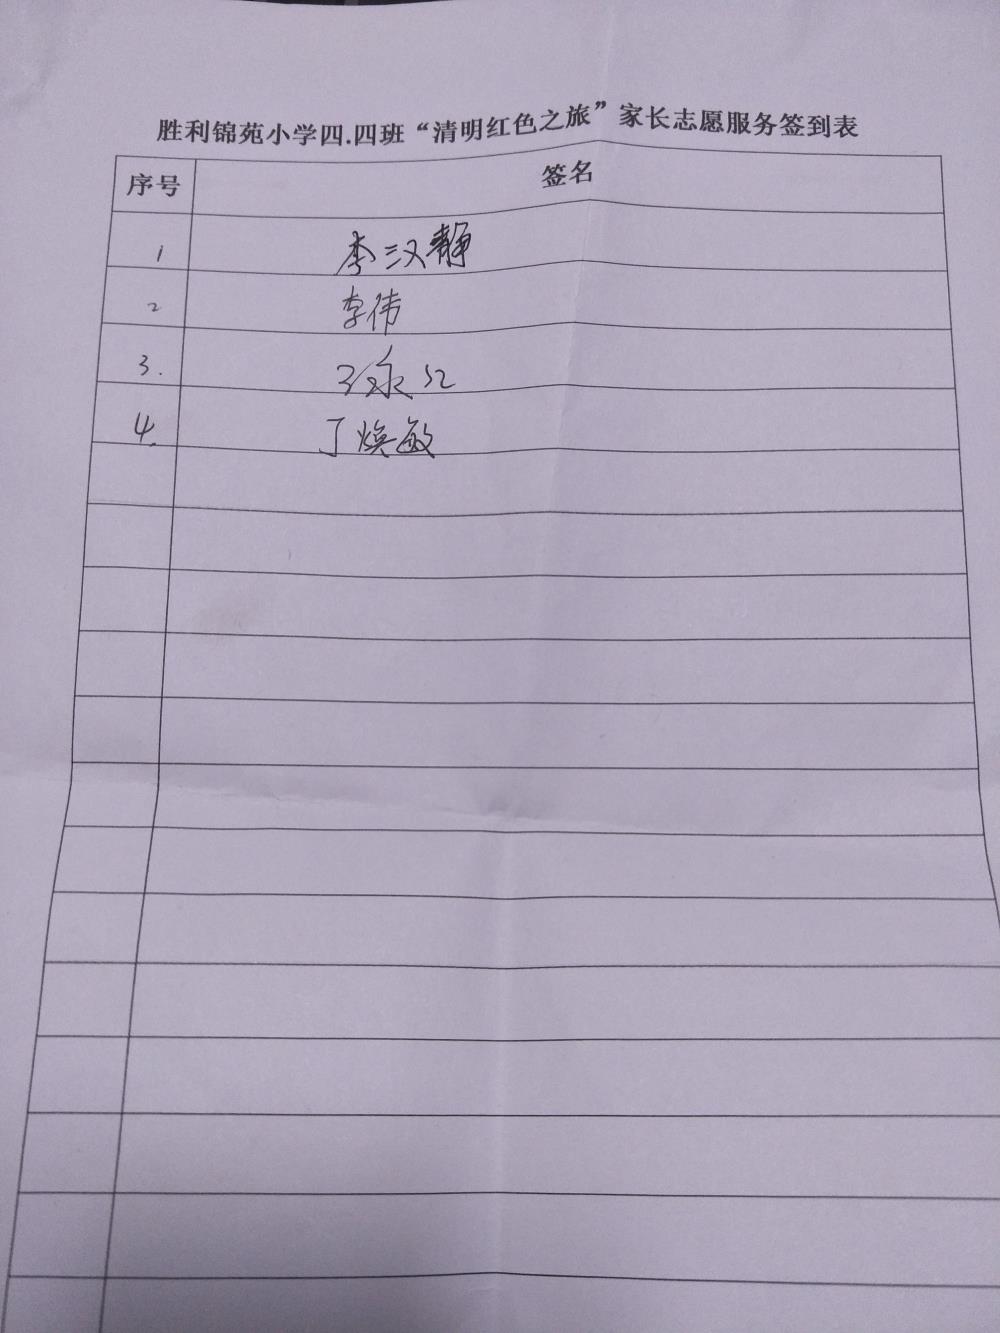 胜利锦苑小学四.四班“清明红色之旅”家长志愿服务签到表
序号 签名
1 李汉静
2 李伟
3.
4. 丁焕敏